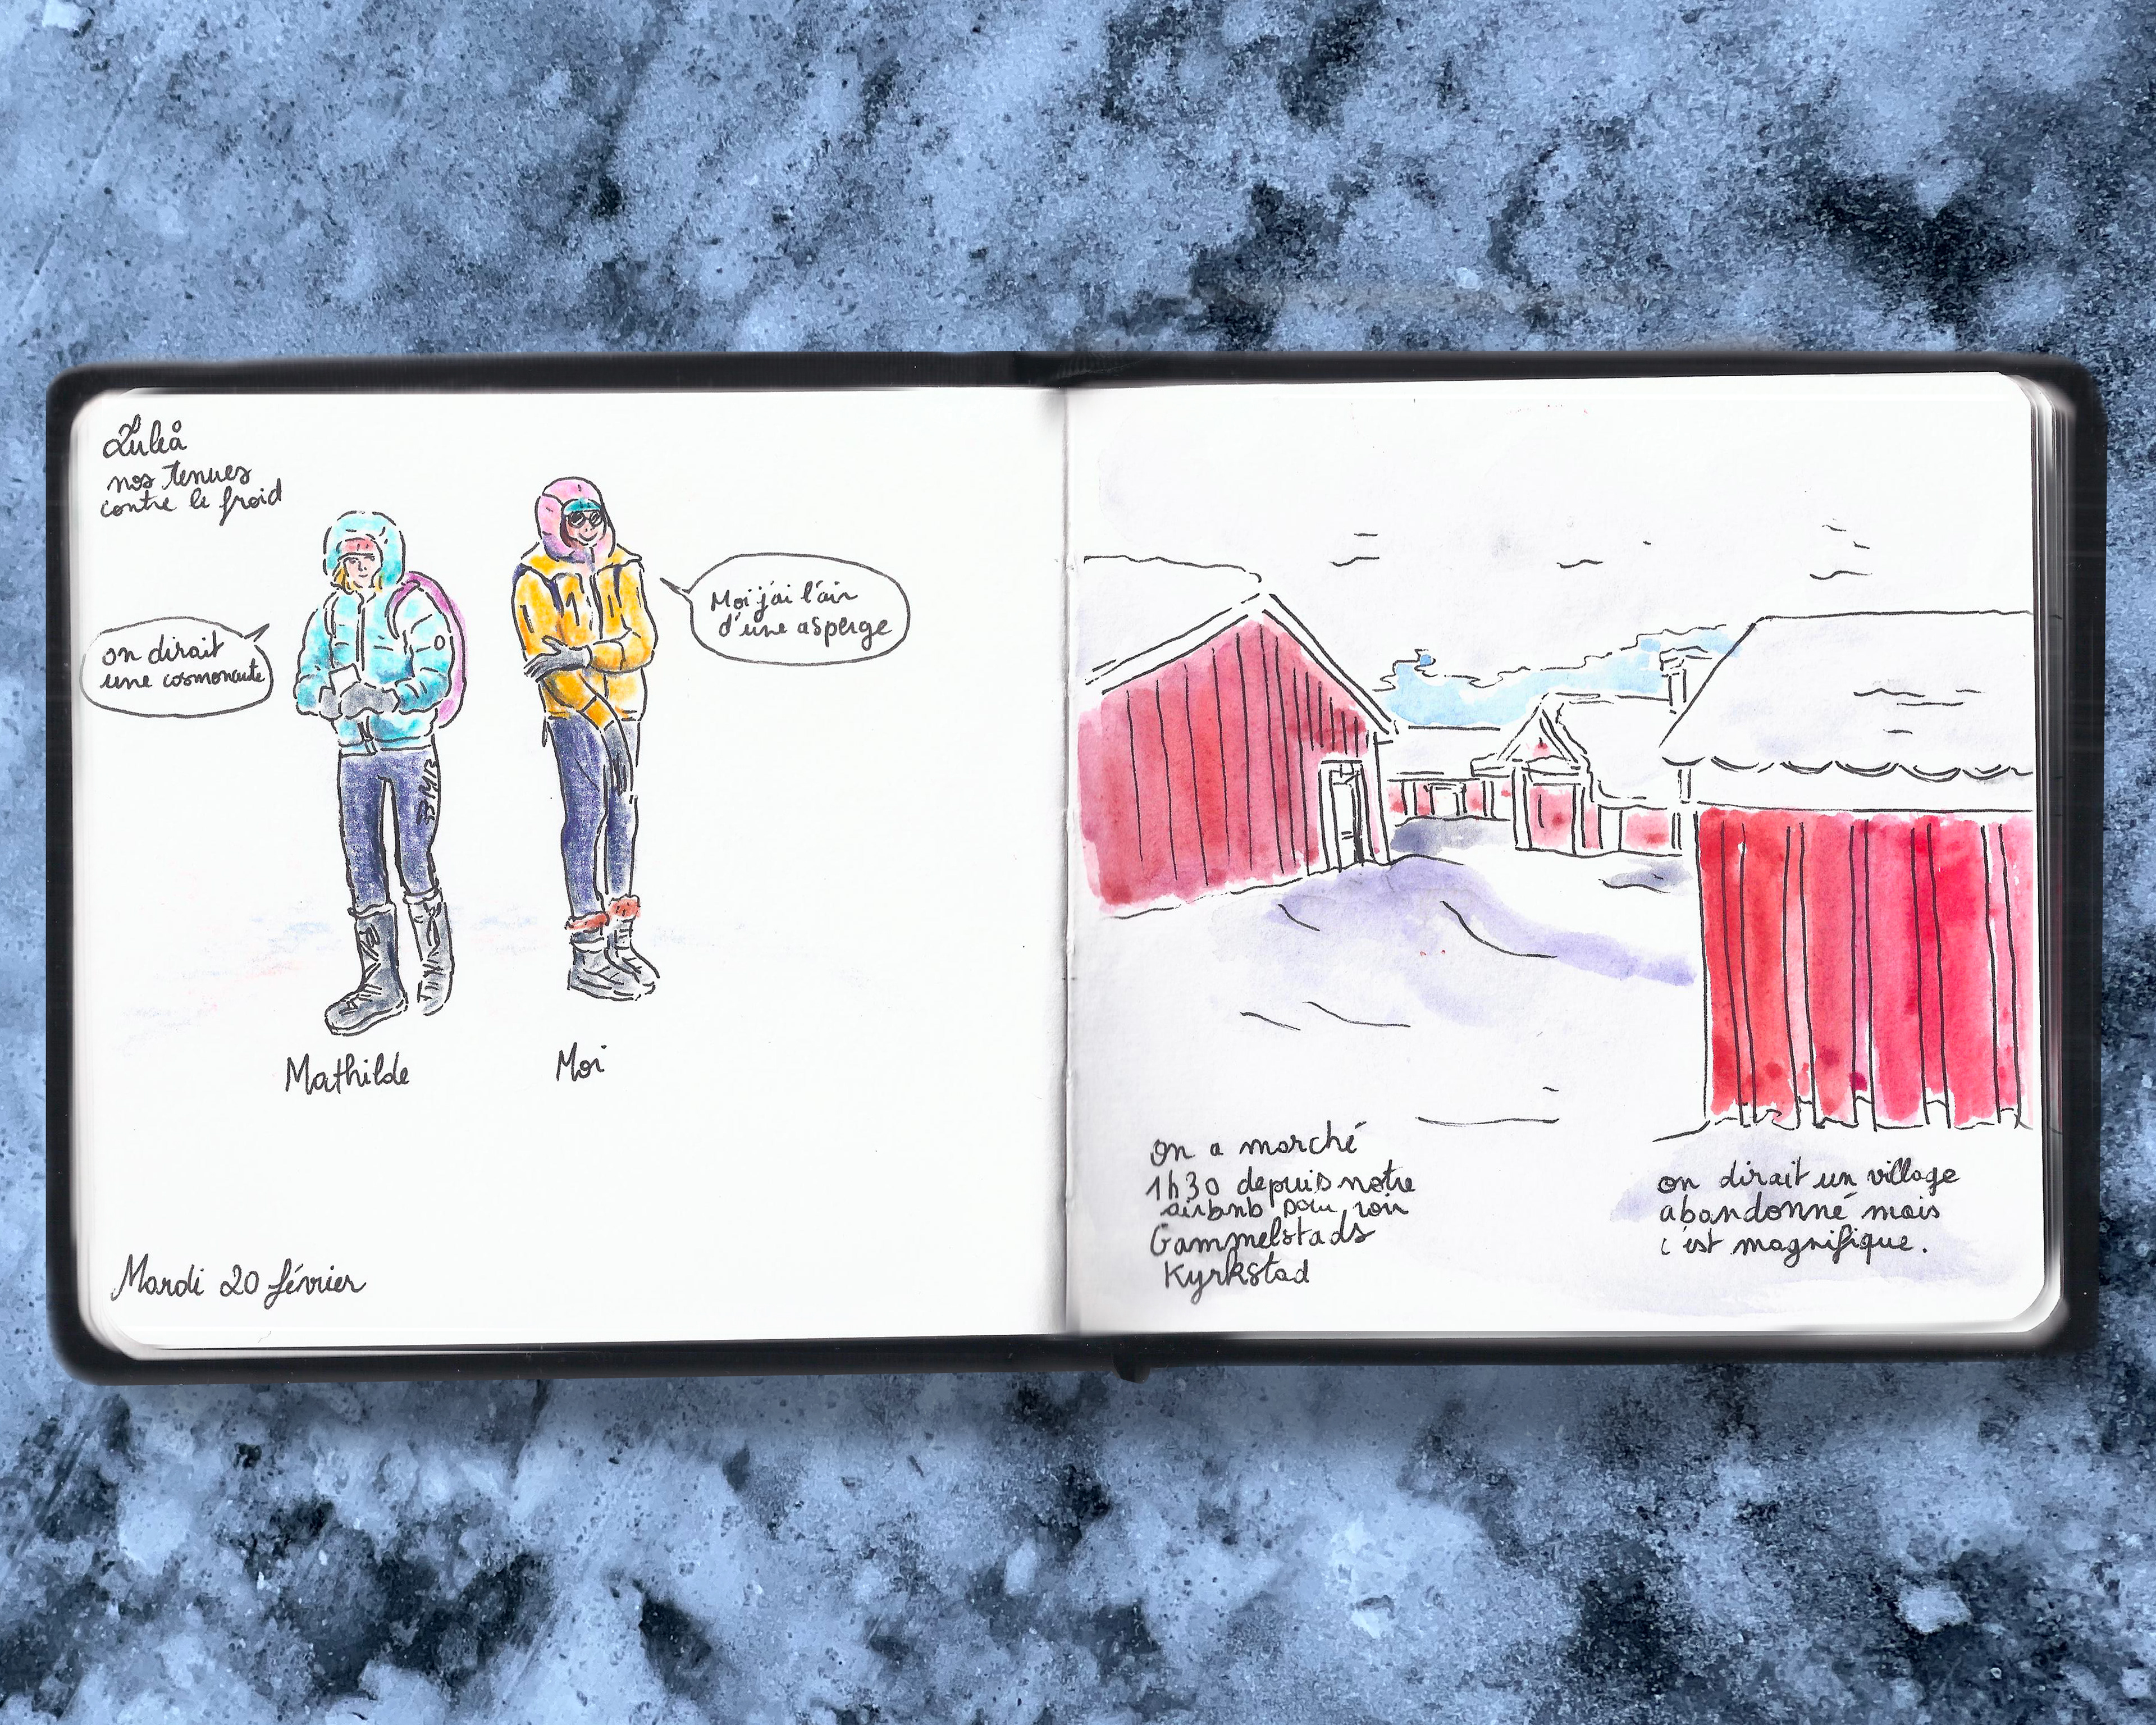 Luleå
nos tenues
contre le froid
on dirait
une cosmonaute
Moi j'ai l'air
d'une asperge
Mathilde
Moi
Mardi 20 février
on a marché
1h30 depuis notre
airbnb pour voir
Gammelstads
Kyrkstad
on dirait un village
abandonné mais
c'est magnifique.